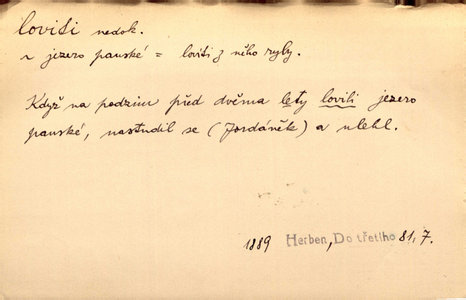 loviti nedok.
~ jezero panské = loviti z něho ryby.
Když na podzim před dvěma lety lovili jezero
panské, nastudil se (Jordáněk) a ulehl.
1889 Herben, Do třetího 81, 7.